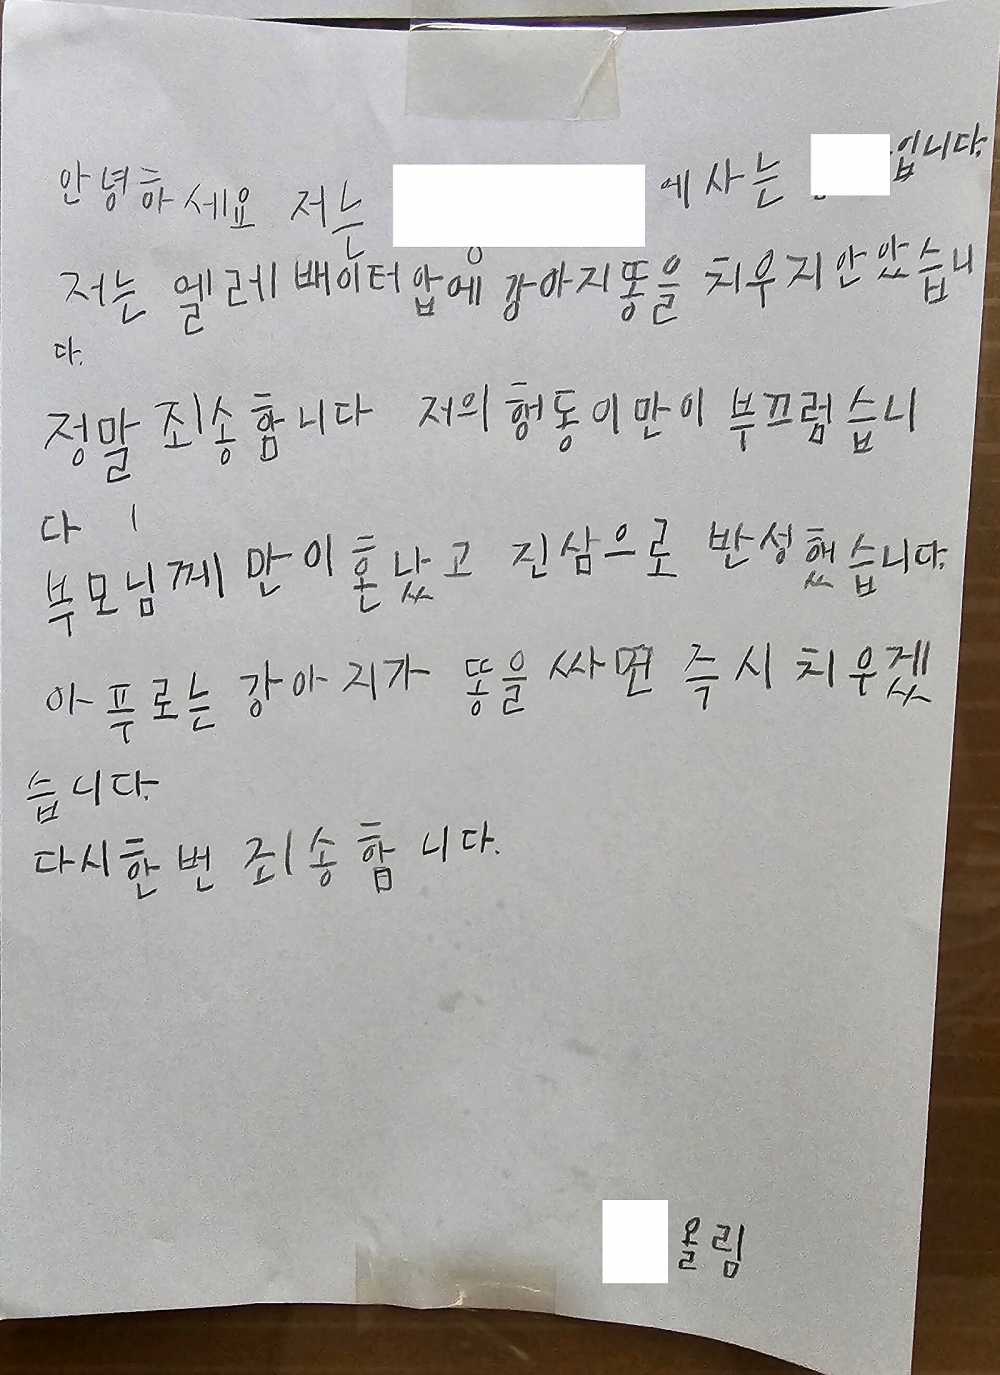 안녕하세요 저는 에사는 입니다.
저는 엘레베이터압에 강아지똥을 치우지안았습니
다.
정말 죄송합니다 저의 행동이만이 부끄럽습니
다
부모님께 만이혼났고 진삼으로 반성했습니다.
아푸로는 강아지가 똥을싸면 즉시 치우겠
습니다.
다시한번 죄송합니다.
올림